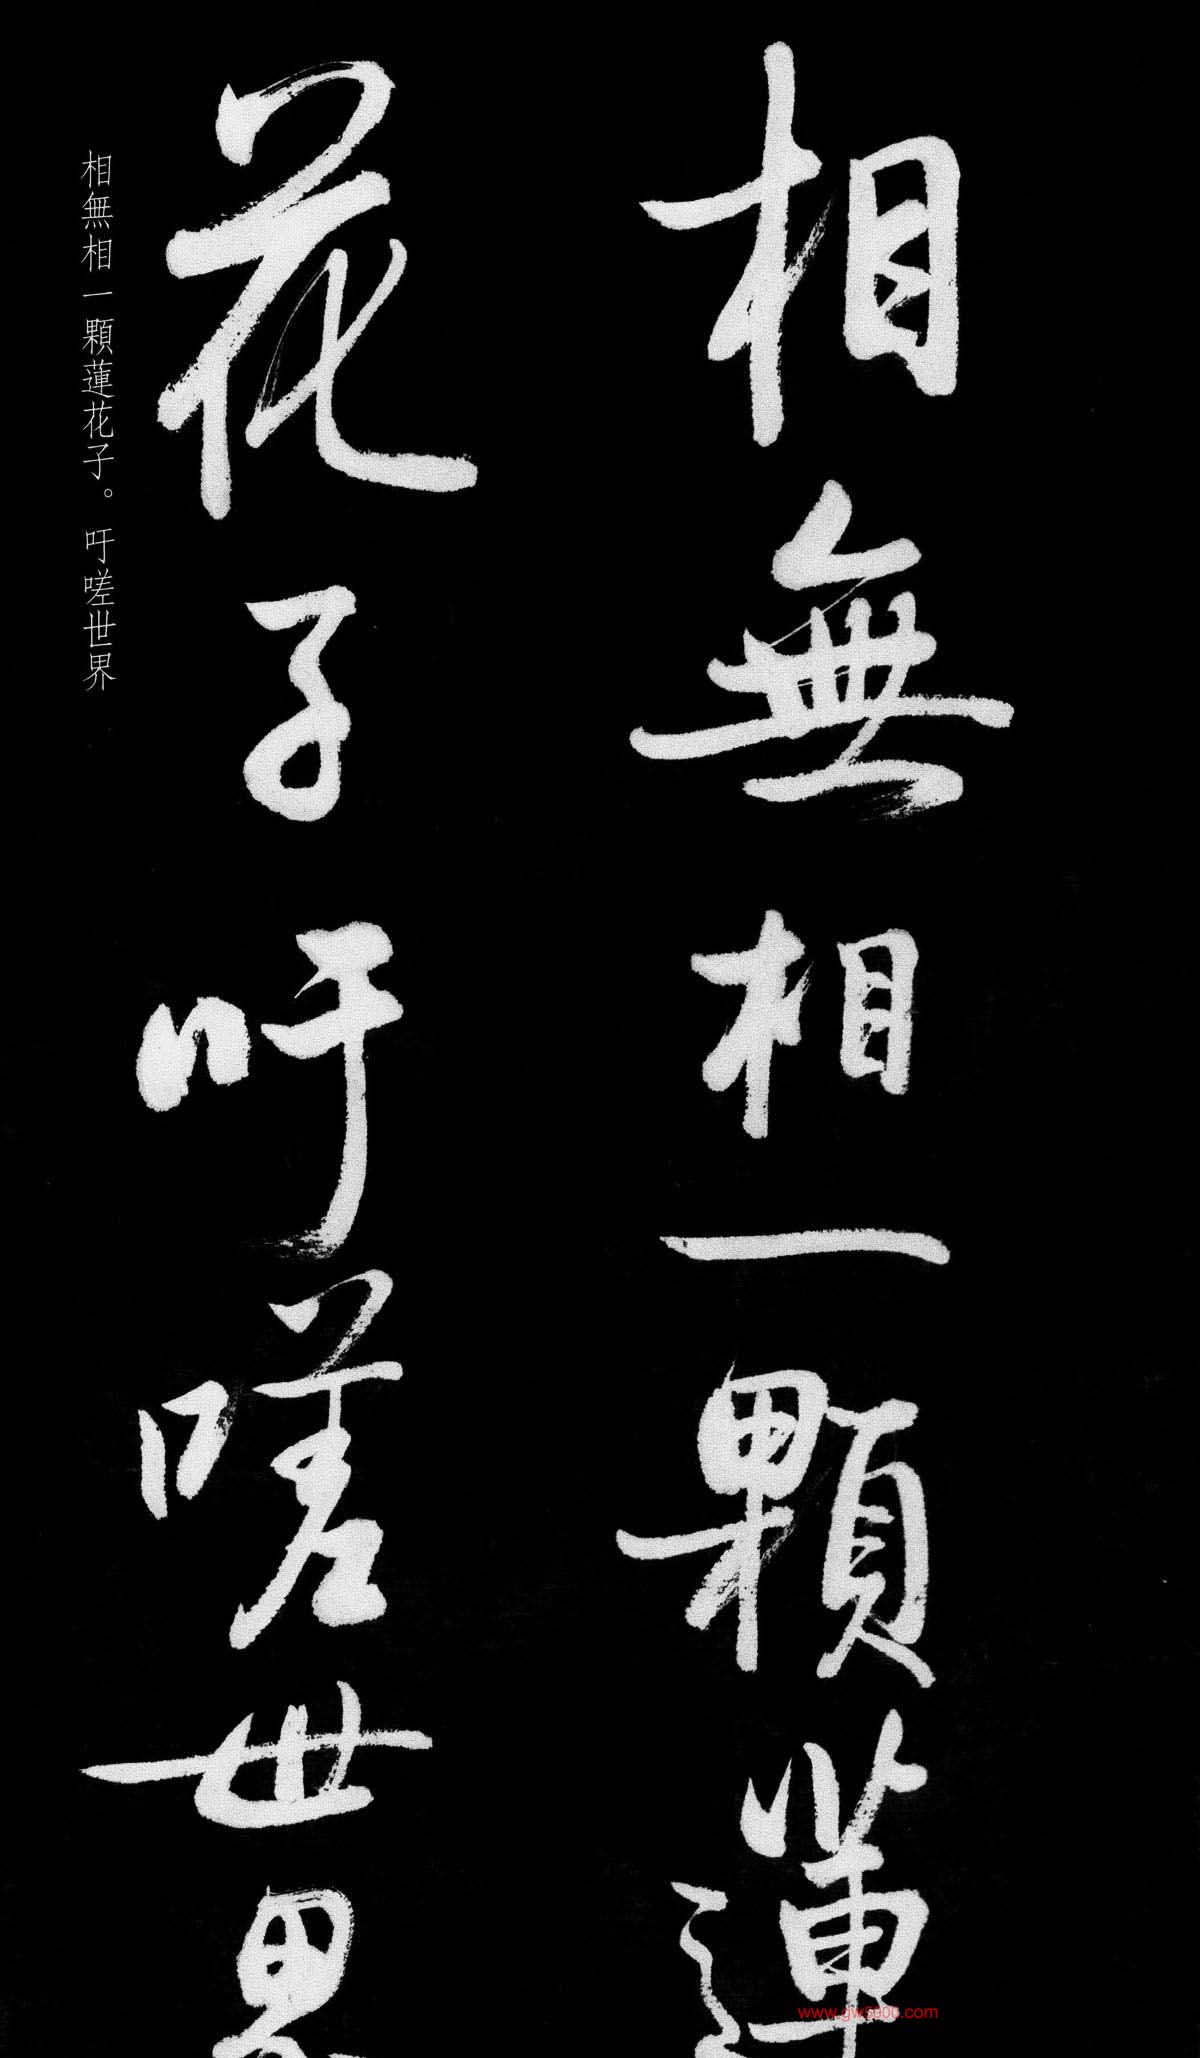 相無相一顆蓮
花子吁嗟世界
相無相一顆蓮花子。吁嗟世界